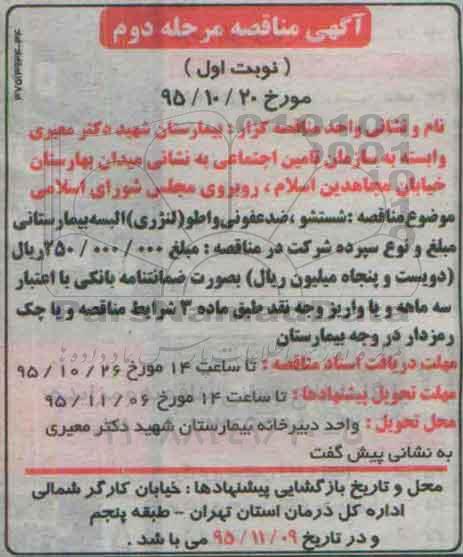 آگهی مناقصه مرحله دوم
( نوبت اول )
مورخ ۲۰ / ۱۰ / ۹۵
نام و نشانی واحد مناقصه گزار : بیمارستان شهید دکتر معیری
وابسته به سازمان تامین اجتماعی به نشانی میدان بهارستان
خیابان مجاهدین اسلام ، روبروی مجلس شورای اسلامی
موضوع مناقصه :شستشو ،ضدعفونی واطو(لنژری)البسه بیمارستانی
مبلغ و نوع سپرده شرکت در مناقصه : مبلغ ۲۵۰/۰۰۰/۰۰۰ریال
(دویست و پنجاه میلیون ریال) بصورت ضمانتنامه بانکی با اعتبار
سه ماهه و یا واریز وجه نقد طبق ماده ۳ شرایط مناقصه و یا چک
رمزدار در وجه بیمارستان
مهلت دریافت اسناد مناقصه : تا ساعت ۱۴ مورخ ۲۶ / ۱۰ / ۹۵
مهلت تحویل پیشنهادها : تا ساعت ۱۴ مورخ ۰۶ / ۱۱ / ۹۵
محل تحویل : واحد دبیرخانه بیمارستان شهید دکتر معیری
به نشانی پیش گفت
محل و تاریخ بازگشایی پیشنهادها : خیابان کارگر شمالی
اداره کل درمان استان تهران - طبقه پنجم
و در تاریخ ۰۹ / ۱۱ / ۹۵ می با شد .